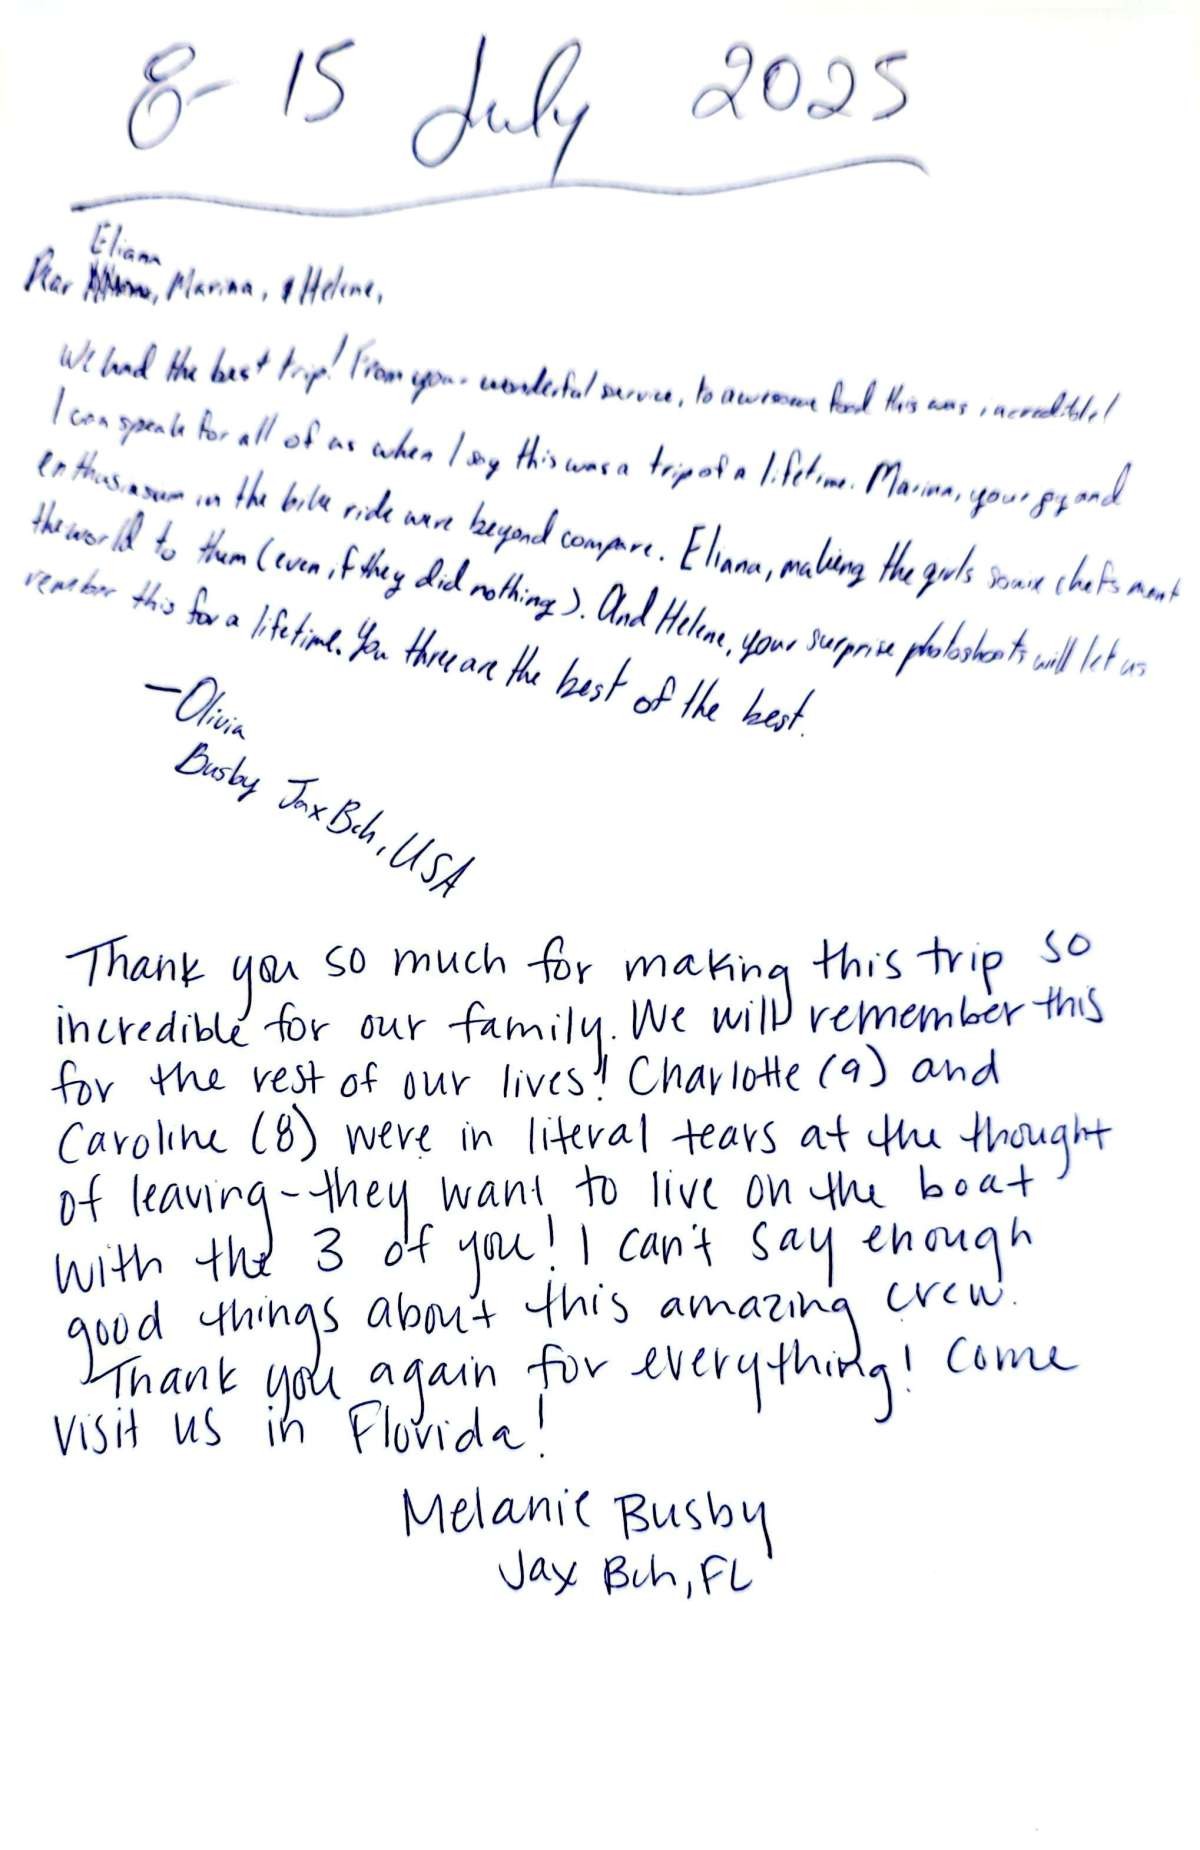 8- 15 July 2025
Eliana
Dear , Marina, & Helene,
We had the best trip! From your wonderful service, to awesome food this was incredible!
I can speak for all of us when I say this was a trip of a lifetime. Marina, your joy and
enthusiasm in the bike ride were beyond compare. Eliana, making the girls chefs ment
the world to them (even if they did nothing). And Helene, your surprise photoshoots will let us
remember this for a lifetime. You three are the best of the best.
—Olivia
Busby Jax Bch, USA
Thank you so much for making this trip so
incredible for our family. We will remember this
for the rest of our lives! Charlotte (9) and
Caroline (8) were in literal tears at the thought
of leaving - they want to live on the boat
with the 3 of you! I can't say enough
good things about this amazing crew.
Thank you again for everything! Come
visit us in Florida!
Melanie Busby
Jax Bch, FL